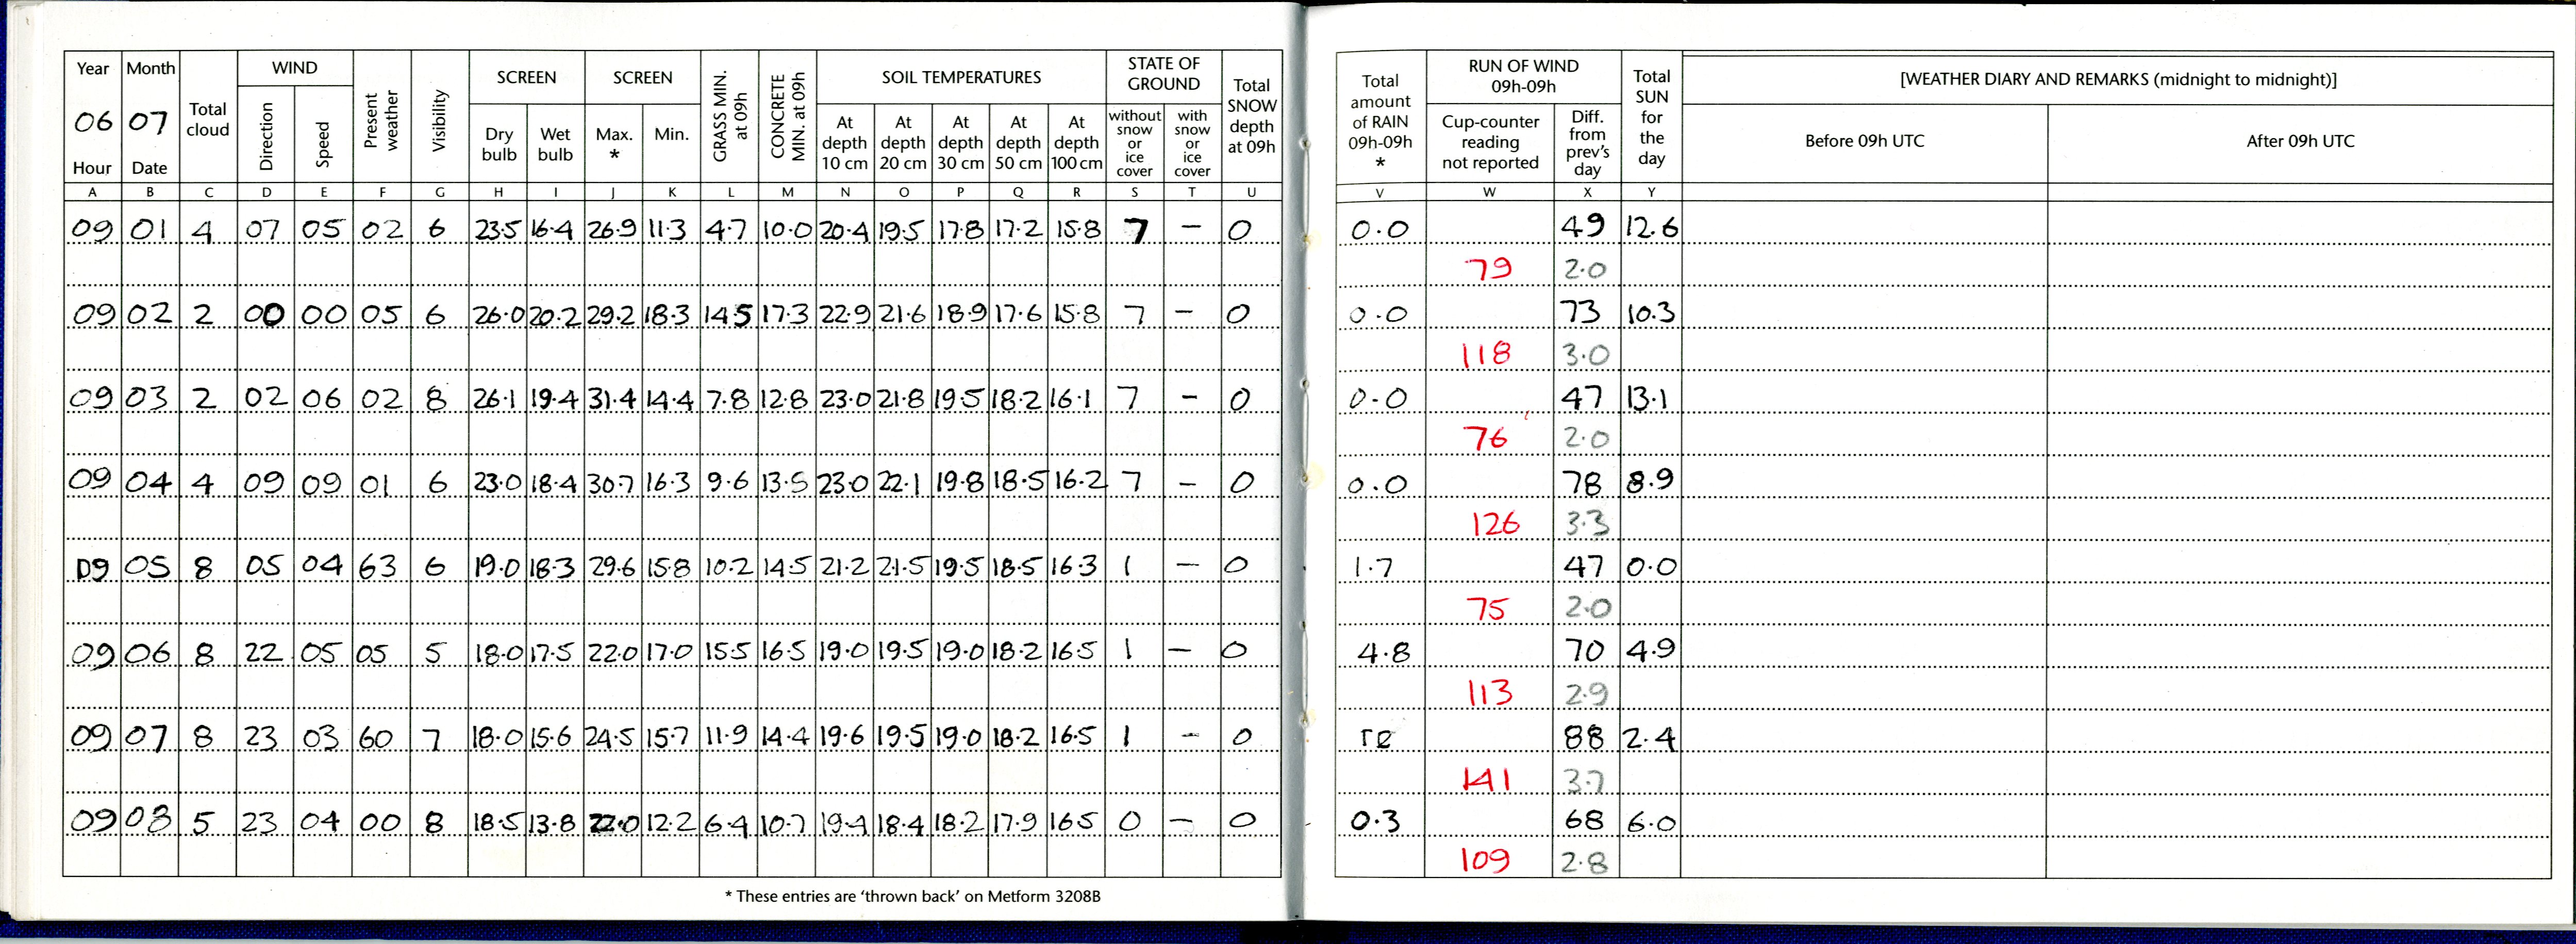 Year Month Total cloud WIND Present weather Visibility SCREEN SCREEN GRASS MIN. at 09h CONCRETE MIN. at 09h SOIL TEMPERATURES STATE OF GROUND Total SNOW depth at 09h Total amount of RAIN 09h-09h * RUN OF WIND 09h-09h Total SUN for the day [WEATHER DIARY AND REMARKS (midnight to midnight)]
06 07 Direction Speed Dry bulb Wet bulb Max. * Min. At depth 10 cm At depth 20 cm At depth 30 cm At depth 50 cm At depth 100 cm without snow or ice cover with snow or ice cover Cup-counter reading not reported Diff. from prev's day Before 09h UTC After 09h UTC
Hour Date
A B C D E F G H I J K L M N O P Q R S T U V W X Y
09 01 4 07 05 02 6 23.5 16.4 26.9 11.3 4.7 10.0 20.4 19.5 17.8 17.2 15.8 7 – 0 0.0 49 12.6
79 2.0
09 02 2 00 00 05 6 26.0 20.2 29.2 18.3 14.5 17.3 22.9 21.6 18.9 17.6 15.8 7 – 0 0.0 73 10.3
118 3.0
09 03 2 02 06 02 8 26.1 19.4 31.4 14.4 7.8 12.8 23.0 21.8 19.5 18.2 16.1 7 – 0 0.0 47 13.1
76 2.0
09 04 4 09 09 01 6 23.0 18.4 30.7 16.3 9.6 13.5 23.0 22.1 19.8 18.5 16.2 7 – 0 0.0 78 8.9
126 3.3
09 05 8 05 04 63 6 19.0 18.3 29.6 15.8 10.2 14.5 21.2 21.5 19.5 18.5 16.3 1 – 0 1.7 47 0.0
75 2.0
09 06 8 22 05 05 5 18.0 17.5 22.0 17.0 15.5 16.5 19.0 19.5 19.0 18.2 16.5 1 – 0 4.8 70 4.9
113 2.9
09 07 8 23 03 60 7 18.0 15.6 24.5 15.7 11.9 14.4 19.6 19.5 19.0 18.2 16.5 1 – 0 re 88 2.4
141 3.7
09 08 5 23 04 00 8 18.5 13.8 22.0 12.2 6.4 10.7 19.4 18.4 18.2 17.9 16.5 0 – 0 0.3 68 6.0
109 2.8
* These entries are ‘thrown back’ on Metform 3208B